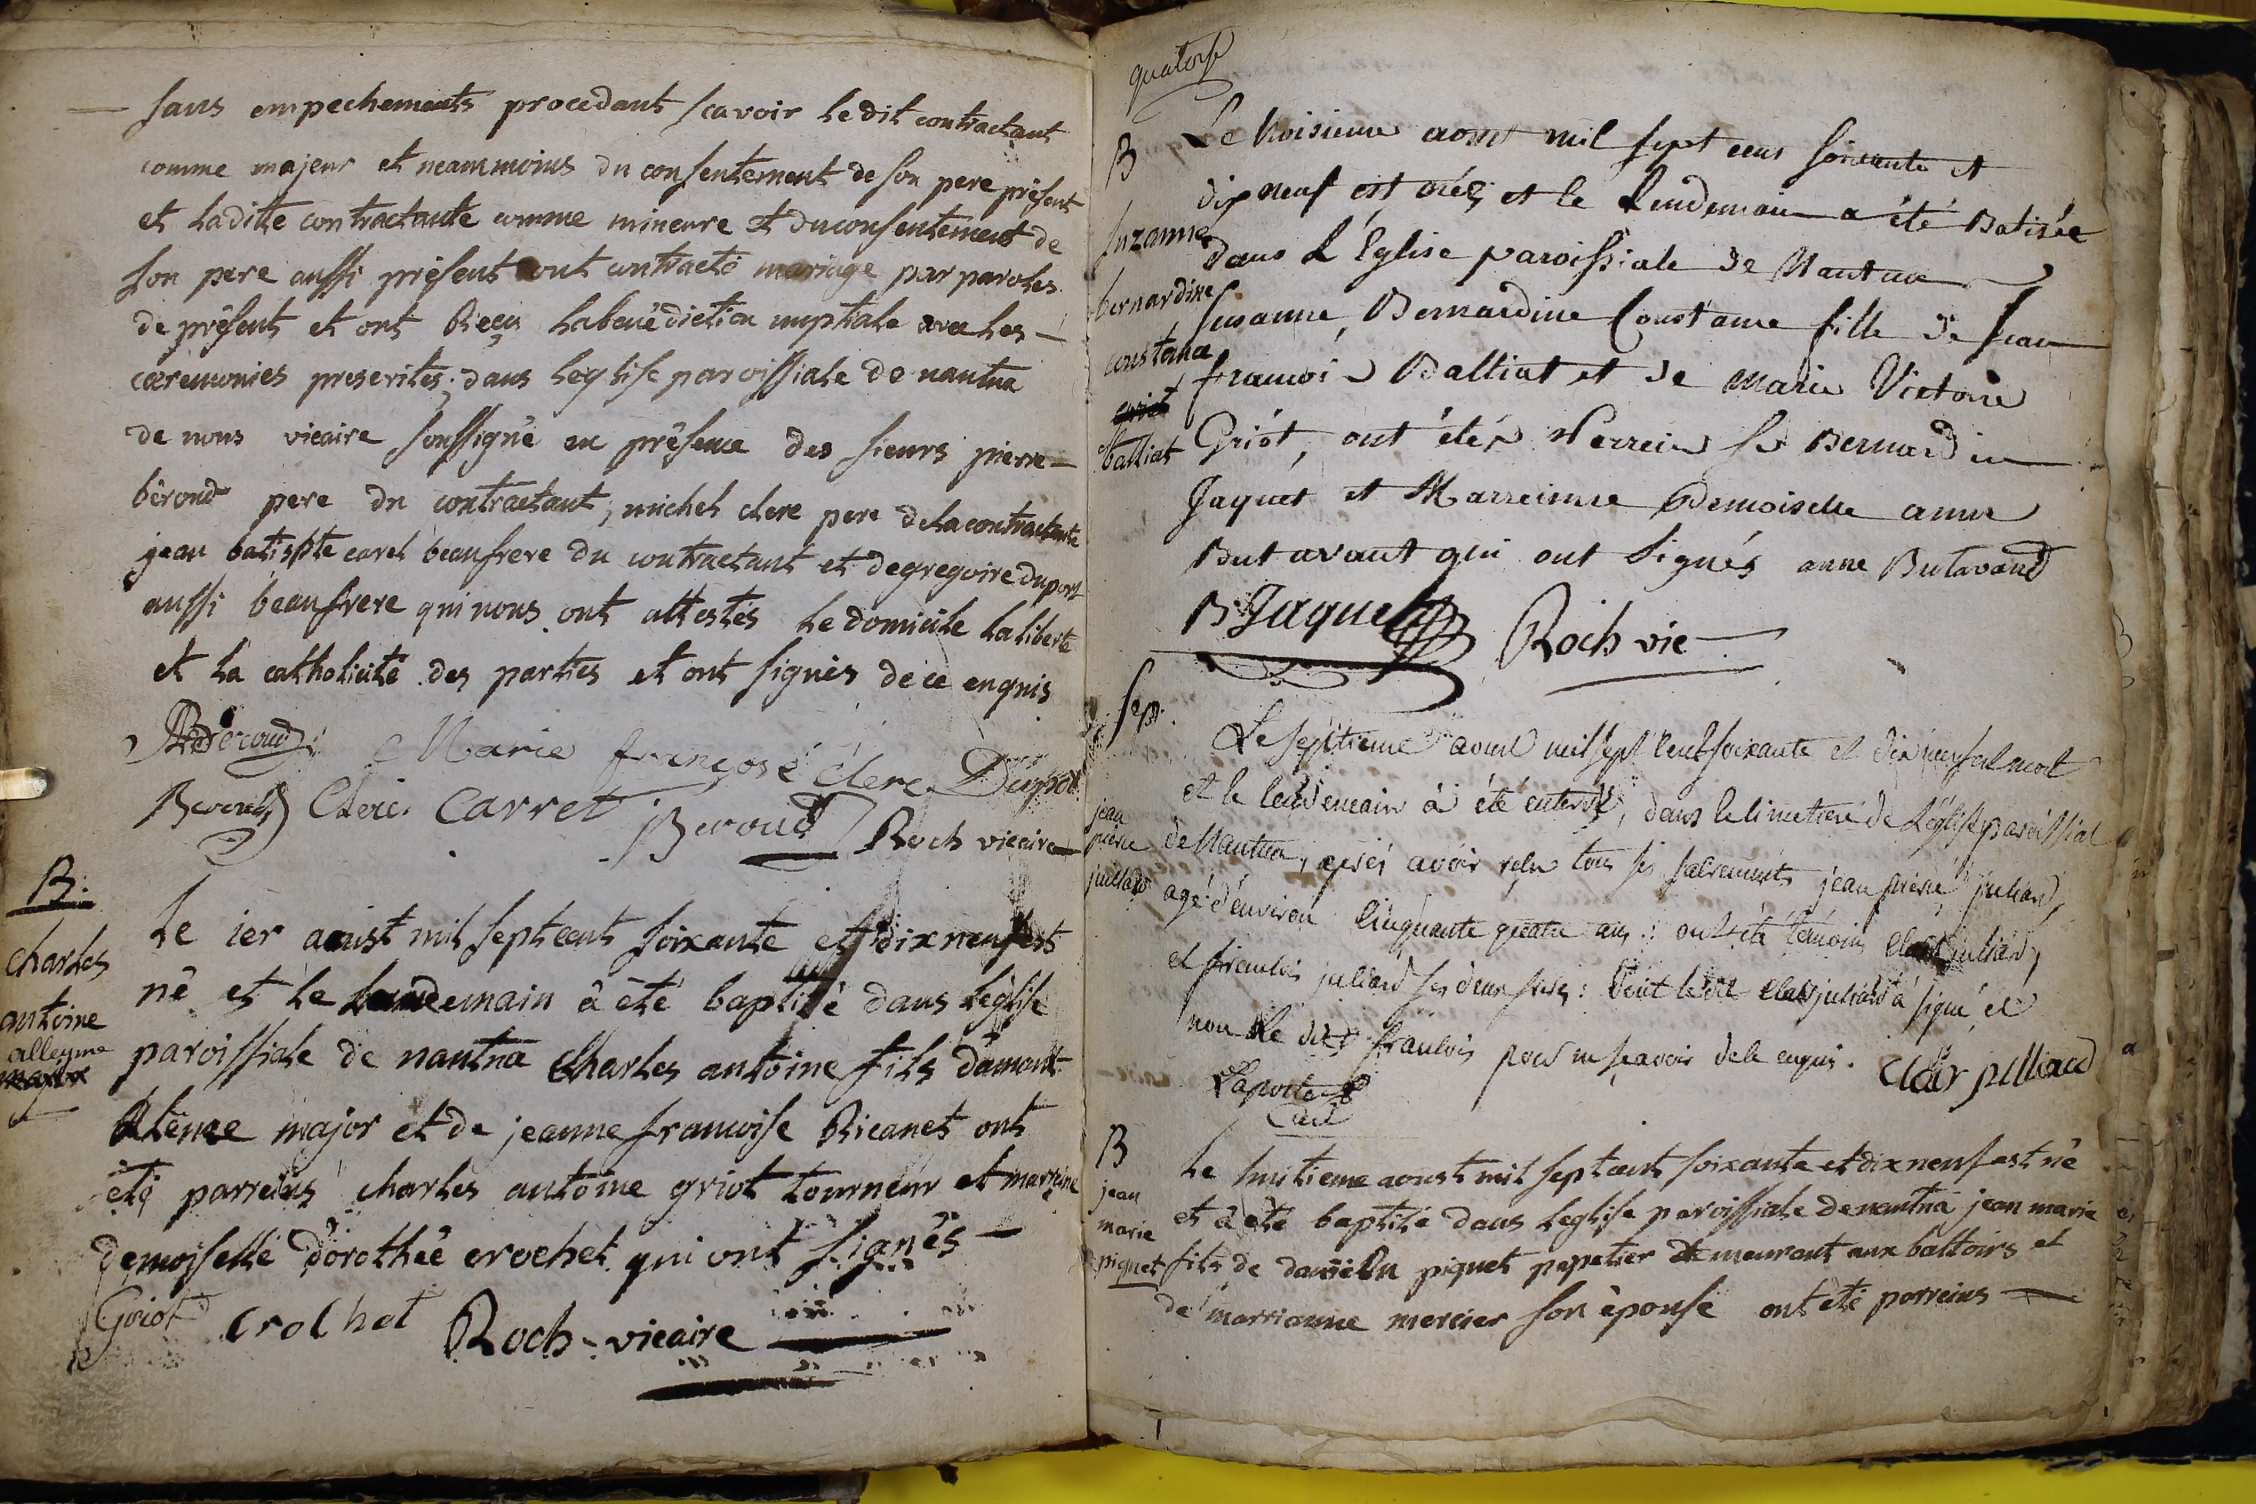 sans empechements procedant sçavoir le dit contractant
comme majeur et neammoins du consentement de son pere présent
et laditte contractante comme mineure et du consentement de
son pere aussi présent ont contracté mariage par paroles
de présents et ont Reçu la benédiction nuptiale avec les
cæremonies prescrites; dans leglise paroissiale de nantua
de nous vicaire soussigné en présence des sieurs pierre
béroud pere du contractant, michel clerc pere de la contractante
jean batispte carel beaufrere du contractant et de gregoire duport
aussi beaufrere qui nous ont attestés le domicile la liberté
et la catholicité des parties et ont signés de ce enquis
Beroud Marie françose clerc Duport
Beroud Clerc Carret Beroud Roch vicaire
B.
charles
antoine
alleyme
major
Le ier aoust mil sept cent soixante et dix neuf est
né et le lendemain a été baptisé dans leglise
paroissiale de nantua Charles antoine fils d'amant
major et de jeanne francoise Ricanet ont
été parreins charles antoine griot tourneur et marreine
demoiselle dorothée crochet qui ont signés
Griot crochet Roch vicaire
quatorse
B
suzanne
bernardine
constance
griot
balliat
Le troisieme aoust mil sept cens soixante et
dix neuf est néé et le lendemain a été Batisée
dans L'Eglise paroissiale de Nantua
Susanne, Bernardine Constance fille de Jean
francois Balliat et de Marie Victoire
Griót, ont étés Perrein Sr Bernardin
Jaquet et Marreinne Demoiselle anne
Butavant qui ont signés anne Butavand
B. Jaquet Roch vic
sep.
jean
pierre
juillard
Le septieme aoust mil sept cent soixante et dix neuf est mort
et le lendemain a été enterré, dans le cimetiere de l'église paroissial
de Nantua, aprés avoir reçu tous ses sacrements jean pierre juliard,
agé d'environ cinquante quatre ans: ont été témoins Clair juliard,
et francois juliard ses deux freres: dont le dit Clair juliard a signé et
non le dit francois pour ne sçavoir de le enquis. Clair julliard
Laporte
curé
B
jean
marie
piquet
Le huitieme aoust mil sept cent soixante et dix neuf est né
et a été baptisé dans leglise paroissiale de nantua jean marie
fils de piquet papetier demeurant aux battoirs et
de marrianne mercier son épouse ont été parreins